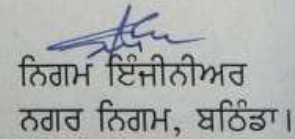 ਨਿਗਮ ਇੰਜੀਨੀਅਰ
ਨਗਰ ਨਿਗਮ, ਬਠਿੰਡਾ।